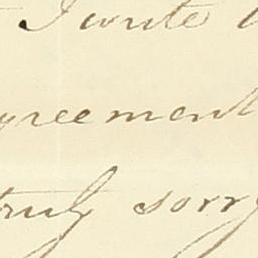 I write
agreement
truly sorry